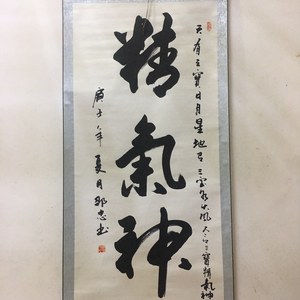 天有三寶日月星地有三寶水火風人有三寶精氣神
精氣神
庚子年夏月